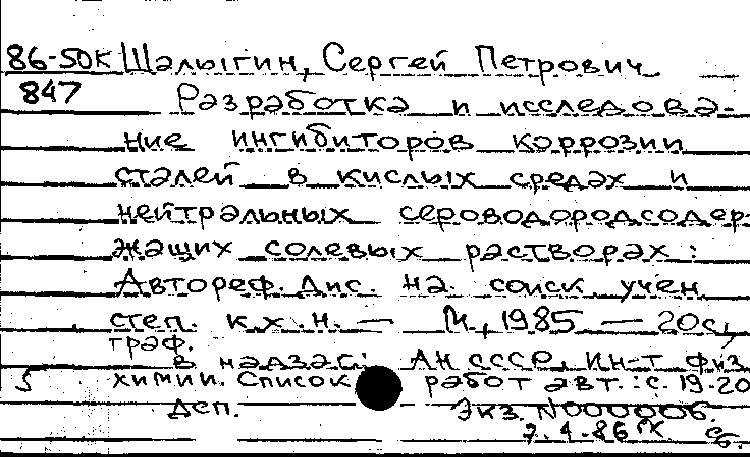 86-50К Шалыгин, Сергей Петрович
847 Разработка и исследова-
ние ингибиторов коррозии
сталей в кислых средах и
нейтральных сероводородсодер-
жащих солевых растворах :
Автореф. Дис. на соиск. учен.
степ. к.х.н. — М., 1985. — 20с.,
граф.
В надзаг: АН СССР, Ин-т физ.
5 химии. Список работ авт.: с. 19-20
Деп. Экз. N000006.
7.4.86